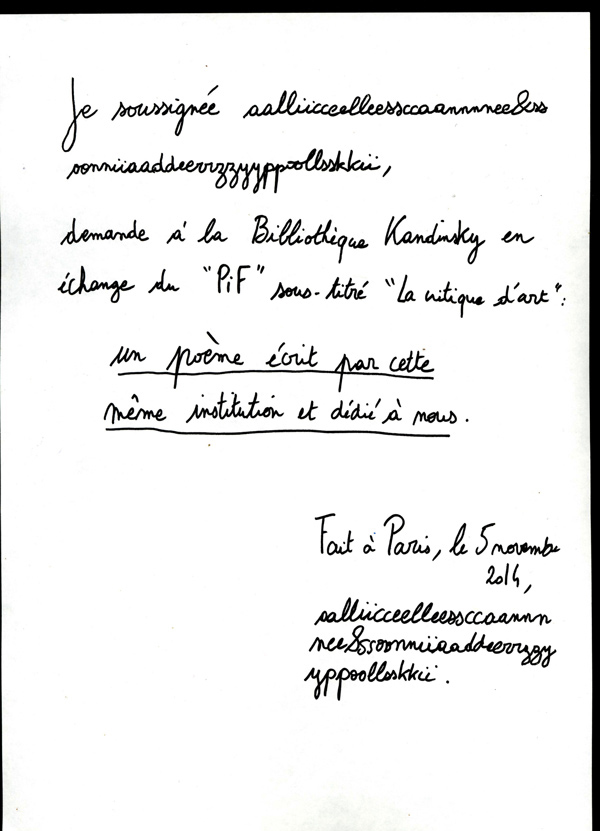 Je soussignée aalliicceelleessccaannnnee&ss
oonniiaaddeerrzzyyppoollsskkii,
demande à la Bibliothèque Kandinsky en
échange du "PiF" sous-titré "La critique d'art":
un poème écrit par cette
même institution et dédié à nous.
Fait à Paris, le 5 novembre
2014,
aalliicceelleessccaannn
nee&ssoonniiaaddeerrzzy
yppoollsskkii.